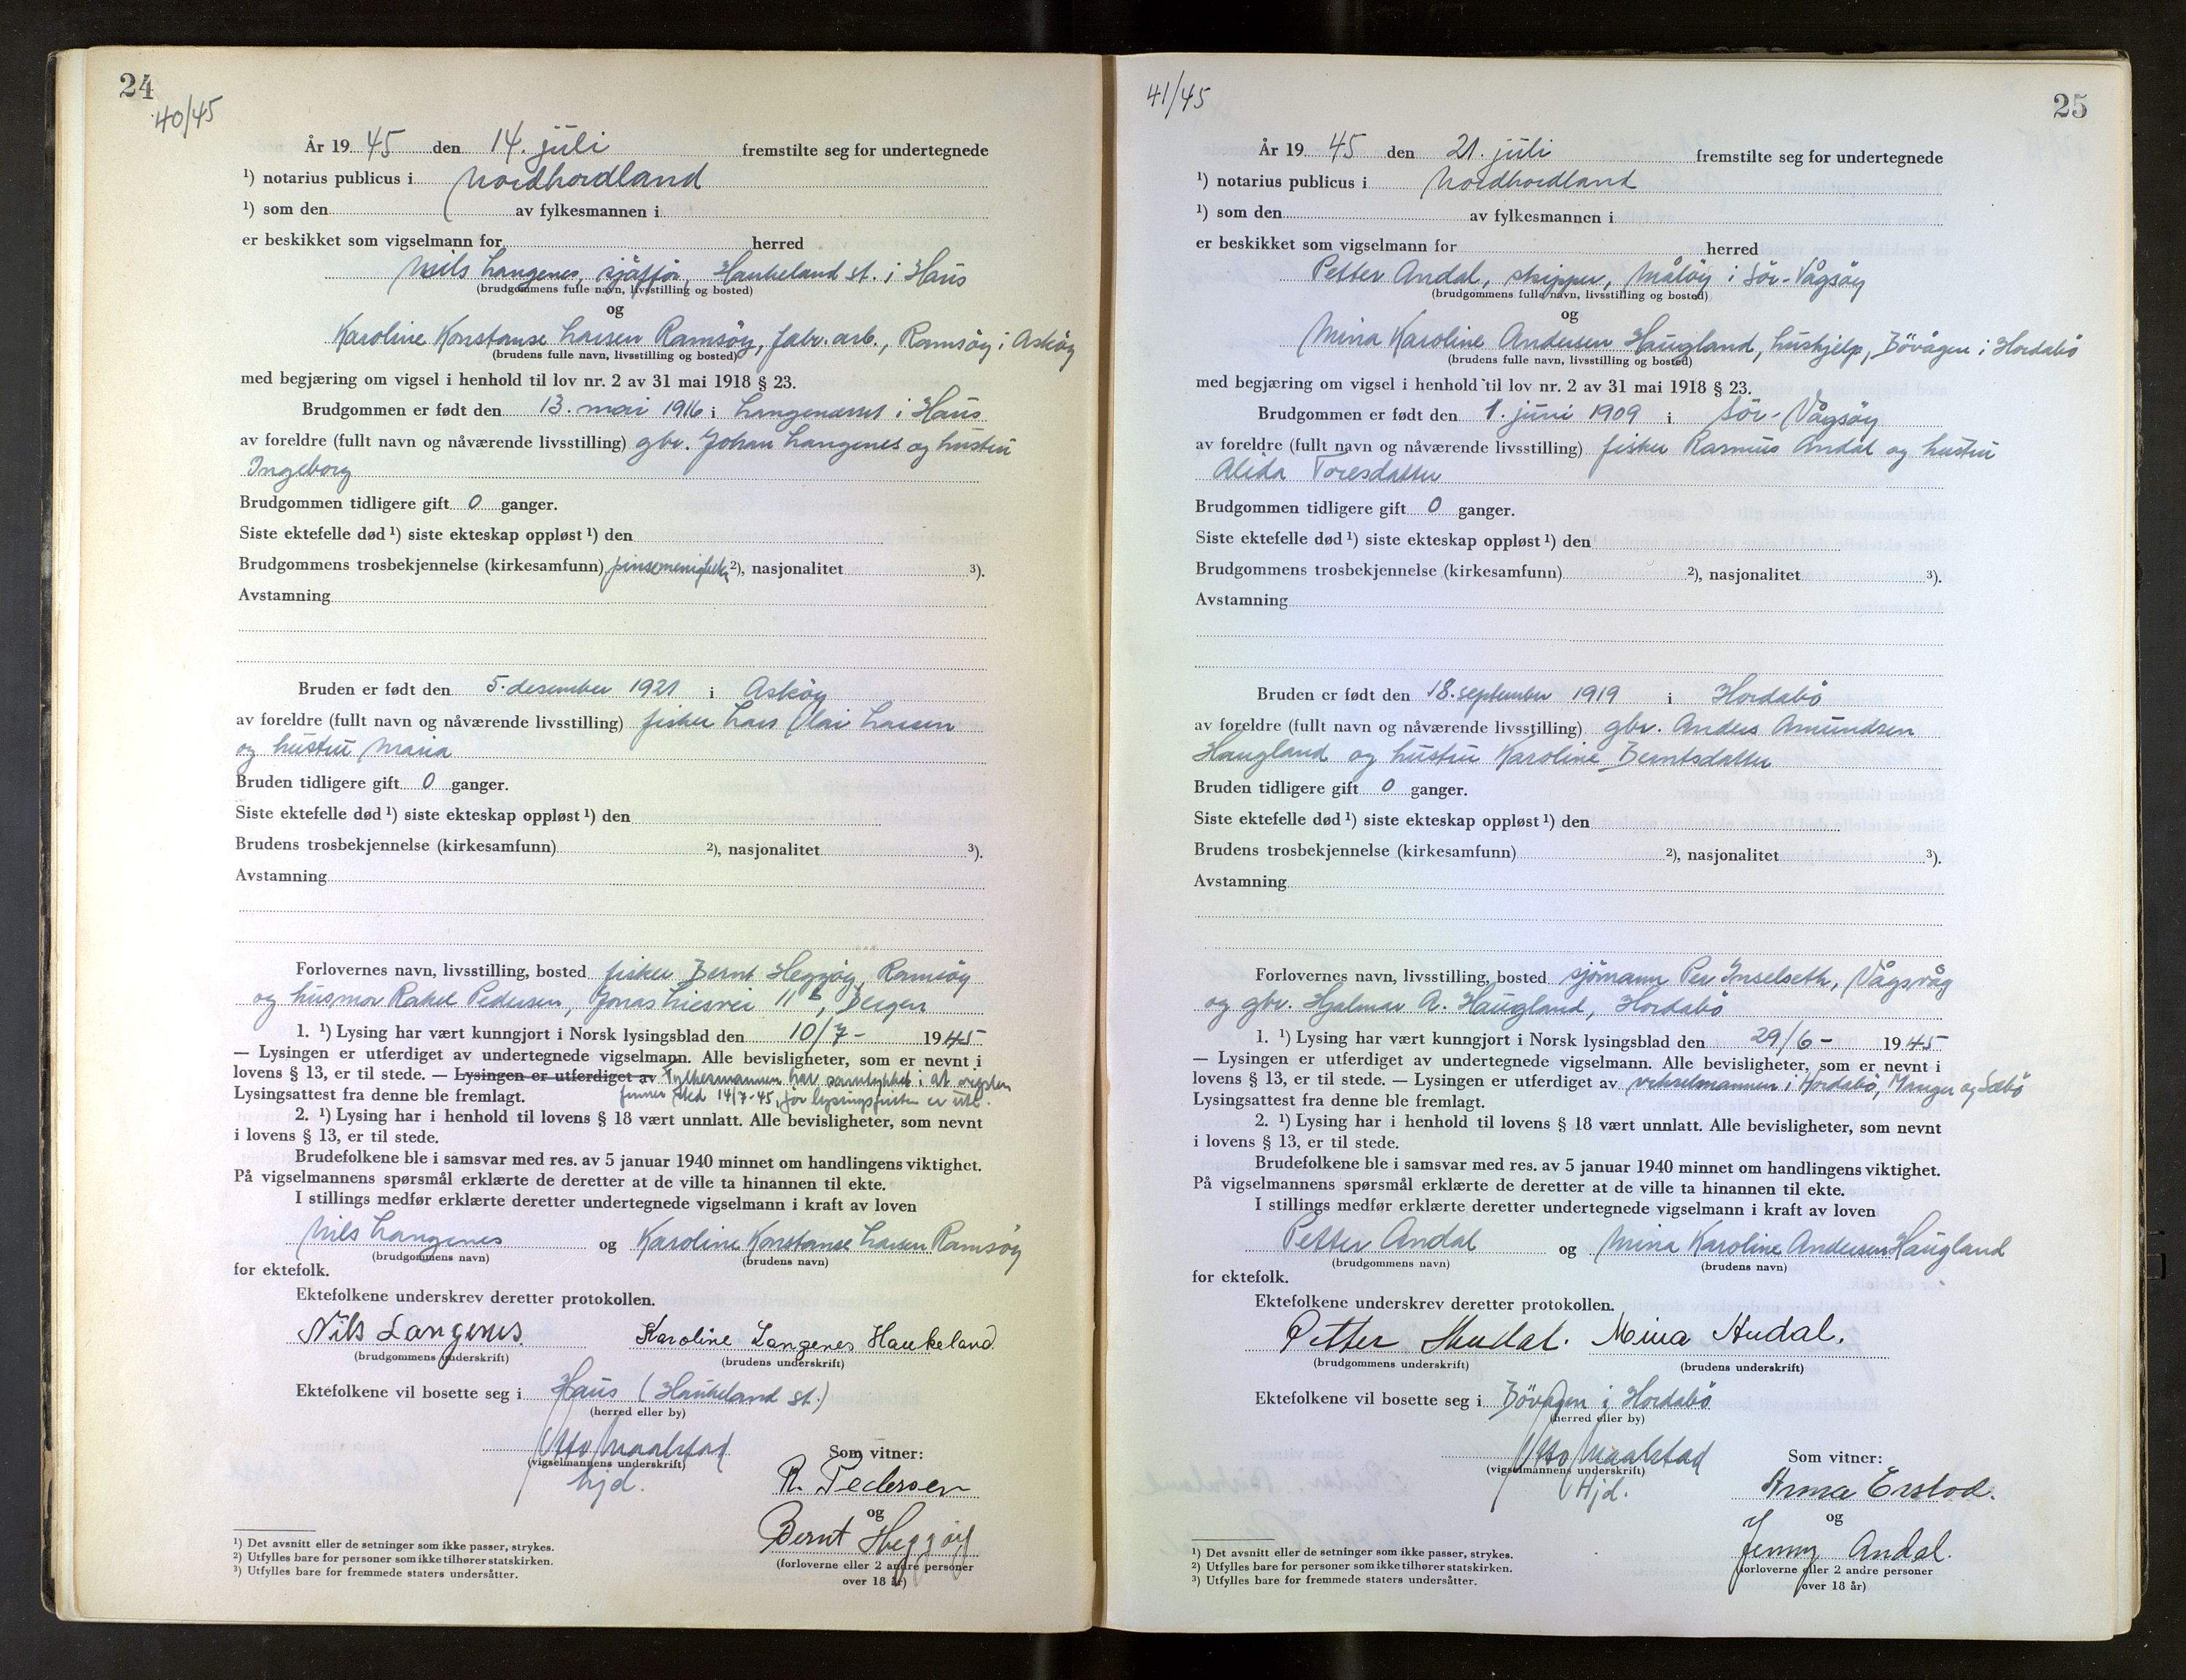 24
40/45
År 19 45 den 14. juli fremstilte seg for undertegnede
¹) notarius publicus i Nordhordland
¹) som den av fylkesmannen i
er beskikket som vigselmann for herred
Nils Langenes, sjåffør, Haukeland st. i Haus
(brudgommens fulle navn, livsstilling og bosted)
og
Karoline Konstanse Larsen Ramsøy, fabr. arb., Ramsøy i Askøy
(brudens fulle navn, livsstilling og bosted)
med begjæring om vigsel i henhold til lov nr. 2 av 31 mai 1918 § 23.
Brudgommen er født den 13. mai 1916 i Langeneset i Haus
av foreldre (fullt navn og nåværende livsstilling) gbr. Johan Langenes og hustru
Ingeborg
Brudgommen tidligere gift 0 ganger.
Siste ektefelle død ¹) siste ekteskap oppløst ¹) den
Brudgommens trosbekjennelse (kirkesamfunn) ²), nasjonalitet ³).
Avstamning
Bruden er født den 5. desember 1921 i Askøy
av foreldre (fullt navn og nåværende livsstilling) fisker Lars Olai Larsen
og hustru Maria
Bruden tidligere gift 0 ganger.
Siste ektefelle død ¹) siste ekteskap oppløst ¹) den
Brudens trosbekjennelse (kirkesamfunn) ²), nasjonalitet ³).
Avstamning
Forlovernes navn, livsstilling, bosted fisker Bernt Heggøy, Ramsøy
og husmor Rakel Pedersen, Jonas Liesvei 11 b, Bergen
1. ¹) Lysing har vært kunngjort i Norsk lysingsblad den 10/7- 1945
— Lysingen er utferdiget av undertegnede vigselmann. Alle bevisligheter, som er nevnt i
lovens § 13, er til stede. — Lysingen er utferdiget av Fylkesmannen har samtykket i at vigslen
Lysingsattest fra denne ble fremlagt. finner sted 14/7-45, før lysingsfristen er utl.
2. ¹) Lysing har i henhold til lovens § 18 vært unnlatt. Alle bevisligheter, som nevnt
i lovens § 13, er til stede.
Brudefolkene ble i samsvar med res. av 5 januar 1940 minnet om handlingens viktighet.
På vigselmannens spørsmål erklærte de deretter at de ville ta hinannen til ekte.
I stillings medfør erklærte deretter undertegnede vigselmann i kraft av loven
Nils Langenes og Karoline Konstanse Larsen Ramsøy
(brudgommens navn) (brudens navn)
for ektefolk.
Ektefolkene underskrev deretter protokollen.
Nils Langenes. Karoline Langenes Haukeland
(brudgommens underskrift) (brudens underskrift)
Ektefolkene vil bosette seg i Haus (Haukeland st.)
(herred eller by)
Otto Maalstad
(vigselmannens underskrift)
hjd.
Som vitner:
R. Pedersen
og
Bernt Heggøy
(forloverne eller 2 andre personer
over 18 år)
¹) Det avsnitt eller de setninger som ikke passer, strykes.
²) Utfylles bare for personer som ikke tilhører statskirken.
³) Utfylles bare for fremmede staters undersåtter.
41/45
25
År 19 45 den 21. juli fremstilte seg for undertegnede
¹) notarius publicus i Nordhordland
¹) som den av fylkesmannen i
er beskikket som vigselmann for herred
Petter Andal, skipper, Måløy i Sør-Vågsøy
(brudgommens fulle navn, livsstilling og bosted)
og
Mina Karoline Andersen Haugland, hushjelp, Bøvågen i Hordabø
(brudens fulle navn, livsstilling og bosted)
med begjæring om vigsel i henhold til lov nr. 2 av 31 mai 1918 § 23.
Brudgommen er født den 1. juni 1909 i Sør-Vågsøy
av foreldre (fullt navn og nåværende livsstilling) fisker Rasmus Andal og hustru
Alida Toresdatter
Brudgommen tidligere gift 0 ganger.
Siste ektefelle død ¹) siste ekteskap oppløst ¹) den
Brudgommens trosbekjennelse (kirkesamfunn) ²), nasjonalitet ³).
Avstamning
Bruden er født den 18. september 1919 i Hordabø
av foreldre (fullt navn og nåværende livsstilling) gbr. Anders Amundsen
Haugland og hustru Karoline Berntsdatter
Bruden tidligere gift 0 ganger.
Siste ektefelle død ¹) siste ekteskap oppløst ¹) den
Brudens trosbekjennelse (kirkesamfunn) ²), nasjonalitet ³).
Avstamning
Forlovernes navn, livsstilling, bosted sjømann Per Inselseth, Vågsvåg
og gbr. Hjalmar A. Haugland, Hordabø
1. ¹) Lysing har vært kunngjort i Norsk lysingsblad den 29/6- 1945
— Lysingen er utferdiget av undertegnede vigselmann. Alle bevisligheter, som er nevnt i
lovens § 13, er til stede. — Lysingen er utferdiget av vikselmannen i Hordabø, Manger og Sæbø
Lysingsattest fra denne ble fremlagt.
2. ¹) Lysing har i henhold til lovens § 18 vært unnlatt. Alle bevisligheter, som nevnt
i lovens § 13, er til stede.
Brudefolkene ble i samsvar med res. av 5 januar 1940 minnet om handlingens viktighet.
På vigselmannens spørsmål erklærte de deretter at de ville ta hinannen til ekte.
I stillings medfør erklærte deretter undertegnede vigselmann i kraft av loven
Petter Andal og Mina Karoline Andersen Haugland
(brudgommens navn) (brudens navn)
for ektefolk.
Ektefolkene underskrev deretter protokollen.
Petter Andal. Mina Andal.
(brudgommens underskrift) (brudens underskrift)
Ektefolkene vil bosette seg i Bøvågen i Hordabø
(herred eller by)
Otto Maalstad
(vigselmannens underskrift)
Hjd.
Som vitner:
Anna Erstad.
og
Jenny Andal.
(forloverne eller 2 andre personer
over 18 år)
¹) Det avsnitt eller de setninger som ikke passer, strykes.
²) Utfylles bare for personer som ikke tilhører statskirken.
³) Utfylles bare for fremmede staters undersåtter.